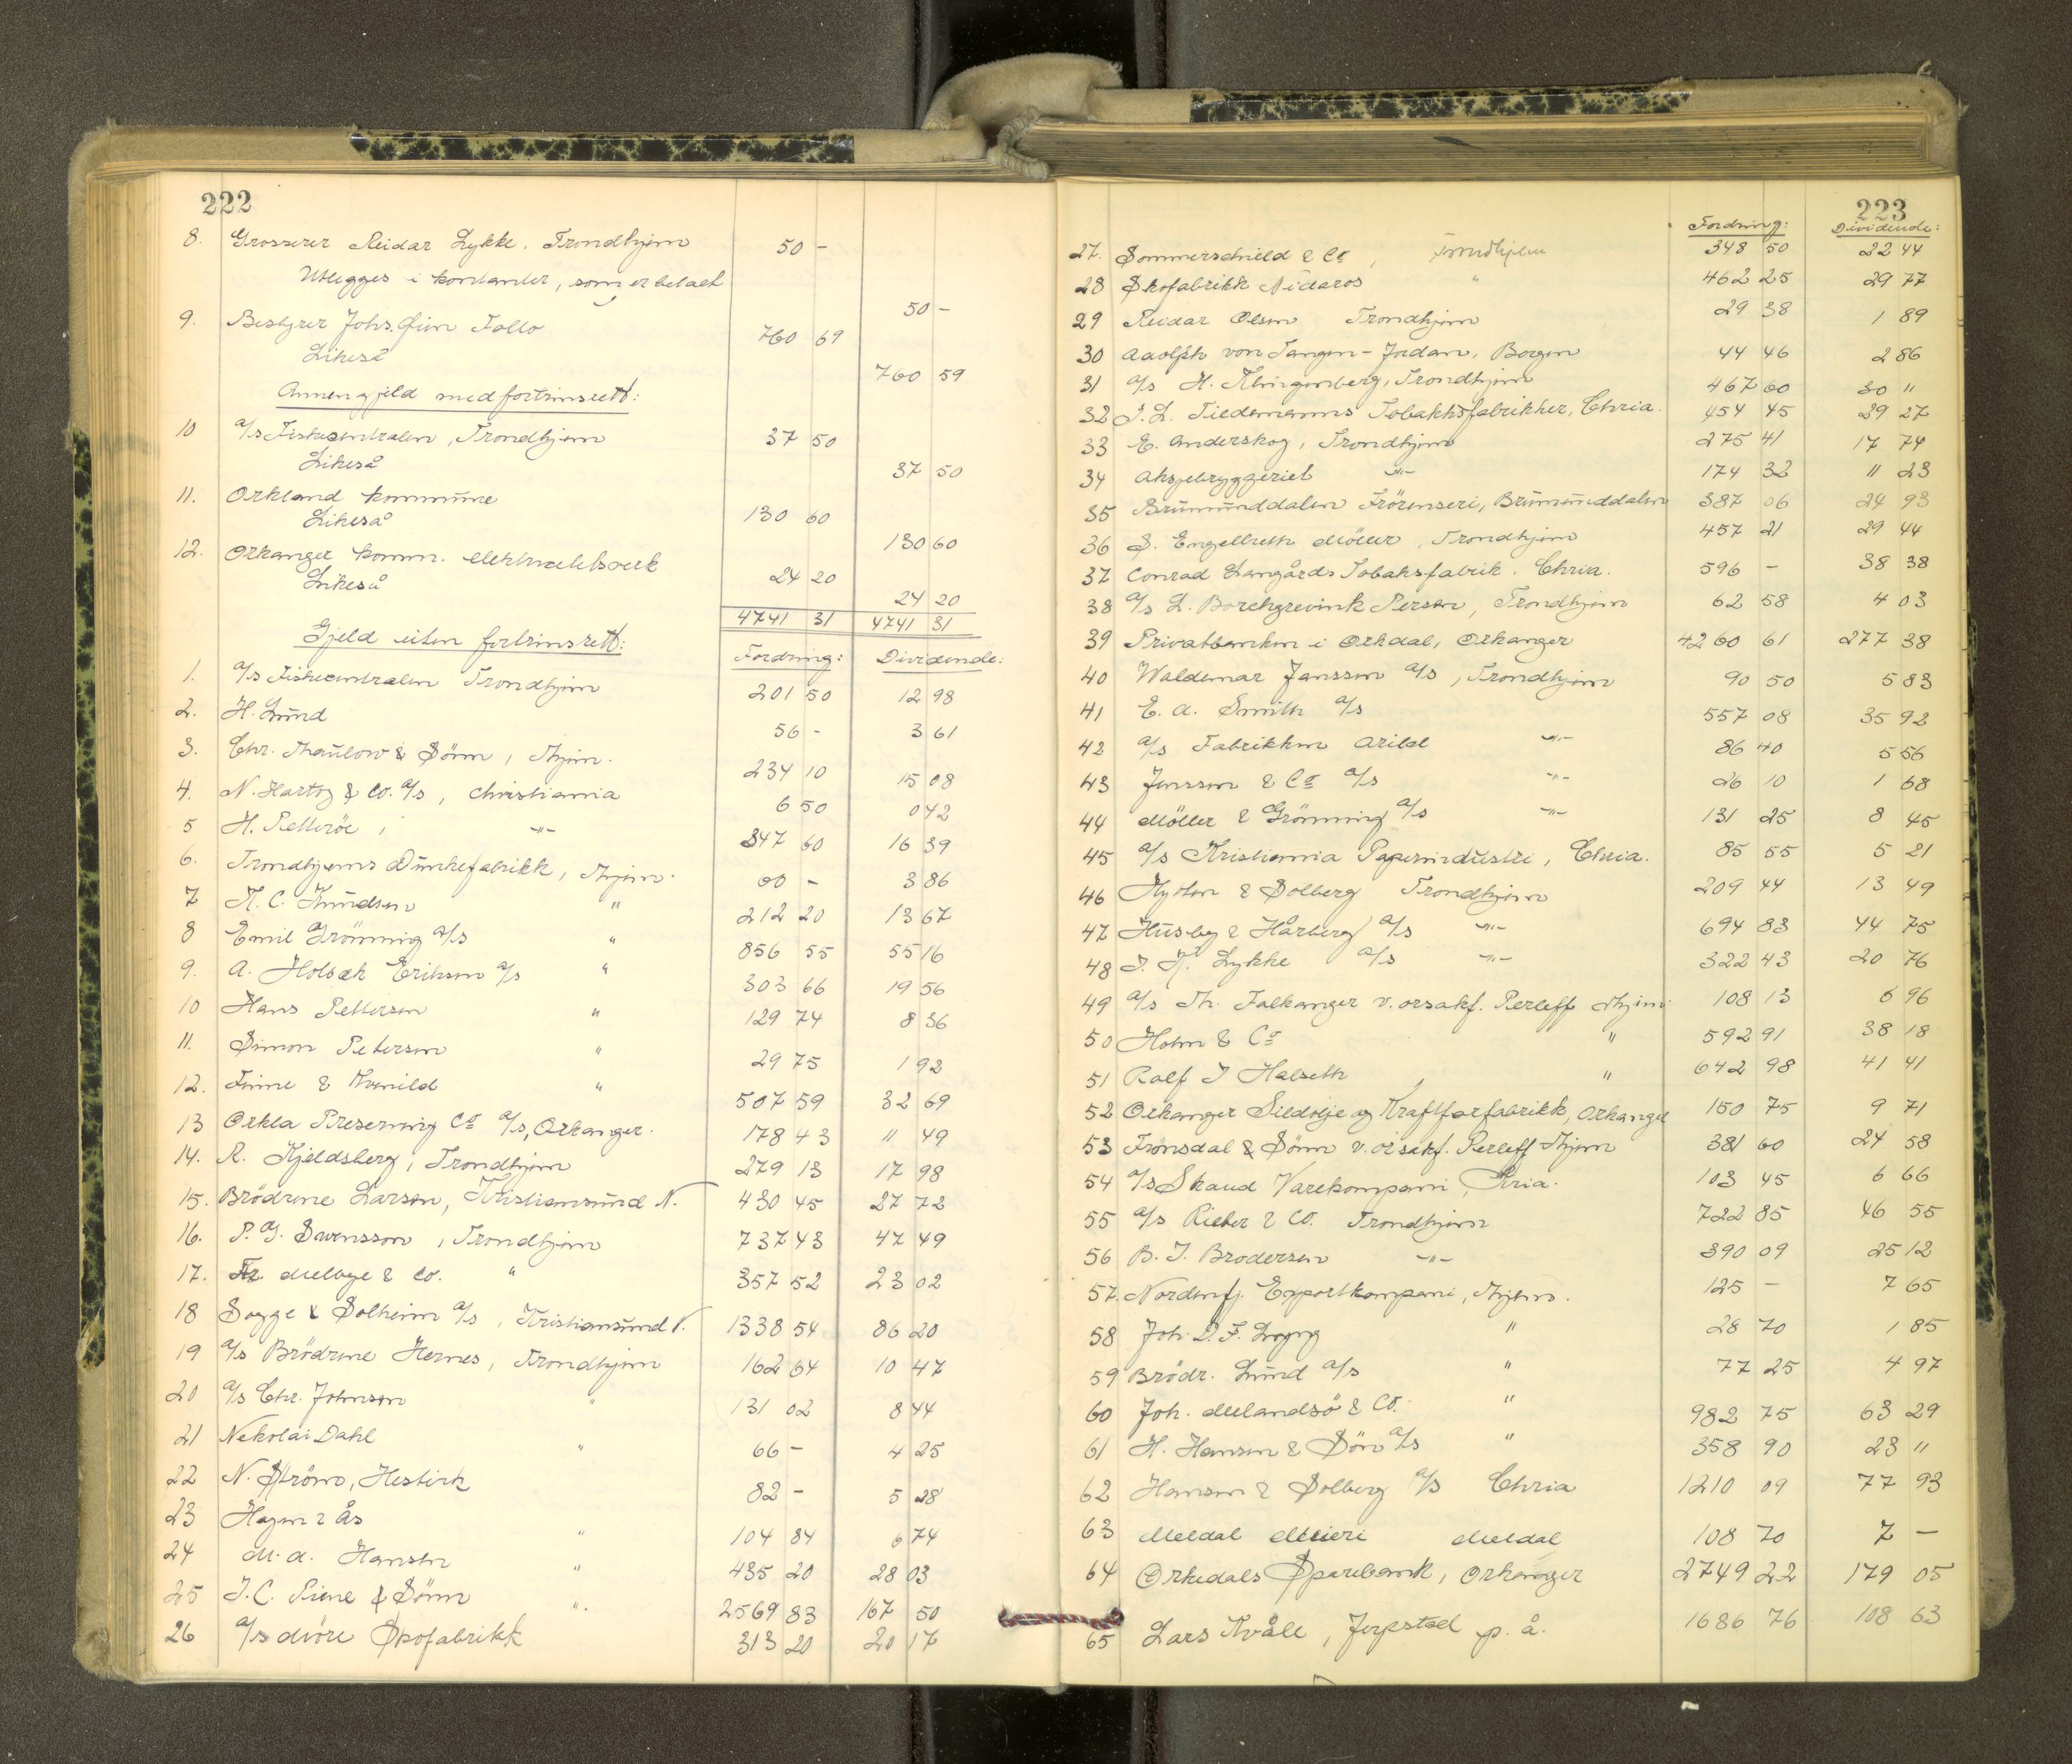 222
8. Grosserer Reidar Lykke, Trondhjem 50 -
Utlegges i kontanter, som er betalt 50 -
9. Bestyrer Johs. Follo 760 69
Likeså 760 59
Annen gjeld med fortrinsrett:
10 a/s Fiskecentralen, Trondhjem 37 50
Likeså 37 50
11. Orkland kommune 130 60
Likeså 130 60
12. Orkanger komm. elektricitetsverk 24 20
Likeså 24 20
4741 31 4741 31
Gjeld uten fortrinsrett: Fordring: Dividende:
1. a/s Fiskecentralen Trondhjem 201 50 12 98
2. H. Lund 56 - 3 61
3. Chr. Thaulow & Sönn, Thjem. 234 10 15 08
4. N. Hartog & Co. a/s, Christiania 6 50 0 42
5 H. Petteröe, -"- 347 60 16 39
6. Trondhjems Dunkefabrikk, Thjem. - 3 86
7 K. C. Knudsen " 212 20 13 67
8 Emil Grönning a/s " 856 55 55 16
9. A. Holbæk Eriksen a/s " 303 66 19 56
10 Hans Pettersen " 129 74 8 36
11. Simon Petersen " 29 75 1 92
12. Finne & Kvenild " 507 59 32 69
13 Orkla Preserving Co a/s, Orkanger. 178 43 11 49
14. R. Kjeldsberg, Trondhjem 279 13 17 98
15. Brödrene Larsen, Kristiansund N. 430 45 27 72
16. P. G. Svensson, Trondhjem 737 43 47 49
17. Fr. Melbye & Co. " 357 52 23 02
18 Sogge & Solheim a/s, Kristiansund N. 1338 54 86 20
19 a/s Brödrene Hernes, Trondhjem 162 64 10 47
20 a/s Chr. Johnsen " 131 02 8 44
21 Nekolai Dahl " 66 - 4 25
22 N. Ström, Hestirk 82 - 5 28
23 Hagen & Ås " 104 84 6 74
24 M. A. Hansen " 435 20 28 03
25 I. C. Piene & Sönn ". 2569 83 167 50
26 a/s Möre Skofabrikk 313 20 20 17
223
Fordring: Dividende:
27. Sommerschield & Co, Trondhjem 348 50 22 44
28 Skofabrikk Nidaros " 462 25 29 77
29 Reidar Olsen Trondhjem 29 38 1 89
30 Adolph von Tangen - Jordan, Bergen 44 46 2 86
31 a/s H. Klingenberg, Trondhjem 467 60 30 "
32 J. L. Tiedemanns Tobakksfabrikker, Chria. 454 45 29 27
33 E. Anderskog, Trondhjem 275 41 17 74
34 Aksjebryggeriet -"- 174 32 11 23
35 Brumunddalen Frörenseri, Brumunddalen 387 06 24 93
36 S. Engelbreth Möller, Trondhjem 457 21 29 44
37 Conrad Langårds Tobaksfabrik. Chria. 596 - 38 38
38 a/s L. Borchgrevink Persen, Trondhjem 62 58 4 03
39 Privatbanken i Orkdal, Orkanger 4260 61 277 38
40 Waldemar Janssen a/s, Trondhjem 90 50 5 83
41 E. A. Smith a/s 557 08 35 92
42 a/s Fabrikken Arild -"- 86 40 5 56
43 Jenssen & Co a/s -"- 26 10 1 68
44 Möller & Grönning a/s -"- 131 25 8 45
45 a/s Kristiania Papirindustri, Chria. 85 55 5 21
46 Hysten & Solberg Trondhjem 209 44 13 49
47 Husby & Hårberg a/s -"- 694 83 44 75
48 I. K. Lykke a/s -"- 322 43 20 76
49 a/s Th. Falkanger v. orsakf. Perleff Thjem 108 13 6 96
50 Holm & Co " 592 91 38 18
51 Rolf J Halseth, " 642 98 41 41
52 Orkanger Sildolje og Kraftforfabrikk, Orkanger 150 75 9 71
53 Fronsdal & Sönn v. orsakf. Perleff Thjem 381 60 24 58
54 a/s Skaud Varekompani, Kria. 103 45 6 66
55 a/s Rieber & Co. Trondhjem 722 85 46 55
56 B. J. Brodersen -"- 390 09 25 12
57. Nordenfj. Exportkompani, Thjem. 125 - 7 65
58 Joh. D. F. " 28 70 1 85
59 Brödr. Lund a/s " 77 25 4 97
60 Joh. Melandsö & Co. " 982 75 63 29
61 H. Hansen & Sön a/s " 358 90 23 "
62 Hansen & Solberg a/s Chria 1210 09 77 93
63 Meldal Meieri Meldal 108 70 7 -
64 Orkedals Sparebank, Orkanger 2749 22 179 05
65 Lars Kvåle, Jerpstad p. å. 1686 76 108 63